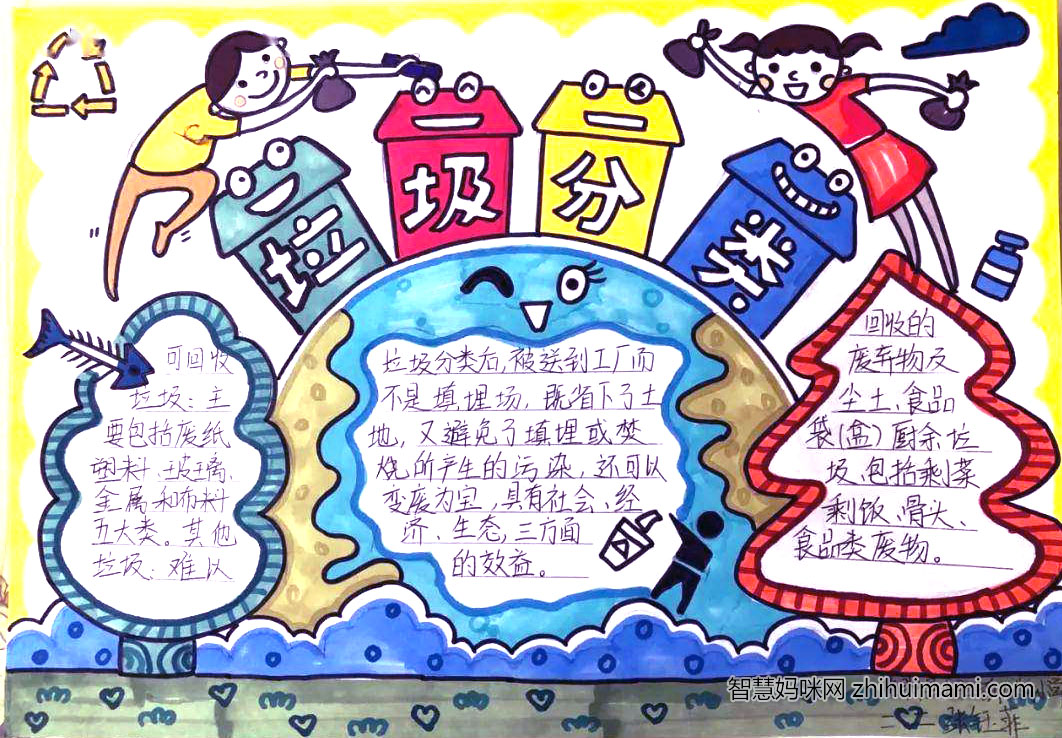 垃圾分类
可回收
垃圾：主
要包括废纸
塑料、玻璃、
金属和布料
五大类。其他
垃圾：难以
垃圾分类后，被送到工厂而
不是填埋场，既省下了土
地，又避免了填埋或焚
烧所产生的污染，还可以
变废为宝，具有社会、经
济、生态，三方面
的效益。
回收的
废弃物及
尘土、食品
袋（盒）厨余垃
圾、包括剩菜
剩饭、骨头、
食品类废物。
智慧妈咪网 zhihuimami.com